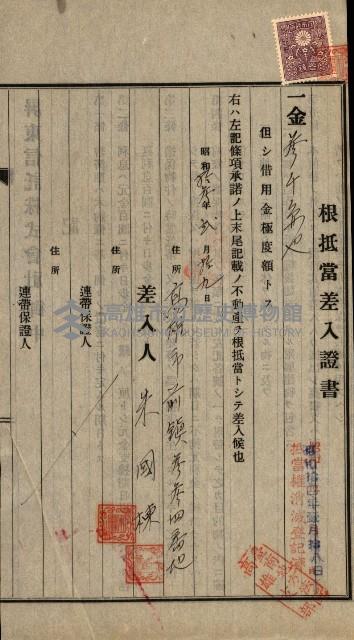 根抵當差入證書
一金參千圓也
但シ借用金極度額トス
右ハ左記條項承諾ノ上末尾記載ノ不動產ヲ根抵當トシテ差入候也
昭和拾參年貳月拾九日
住所 高雄市前鎮參參四番地
差入人 朱國棟
住所
連帶保證人
住所
連帶保證人
昭和拾四年壹月拾八日
抵當權消滅登記濟
高雄市立歷史博物館